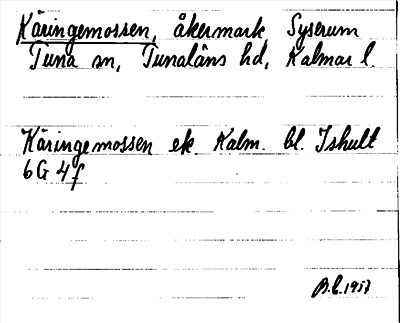 Käringemossen, åkermark Syserum
Tuna sn, Tunaläns hd, Kalmar l.
Käringemossen ek. Kalm. bl. Ishult
6G 4f
B.L. 1957